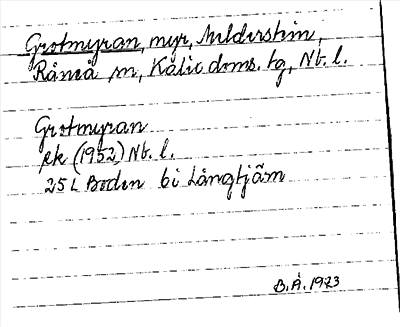 Grotmyran, myr, Mildersheim,
Råneå sn, Kalix doms. tg, Nb. l.
Grotmyran
ek (1952) Nb. l.
25 L Boden 6i Långtjärn
B.Å. 1973